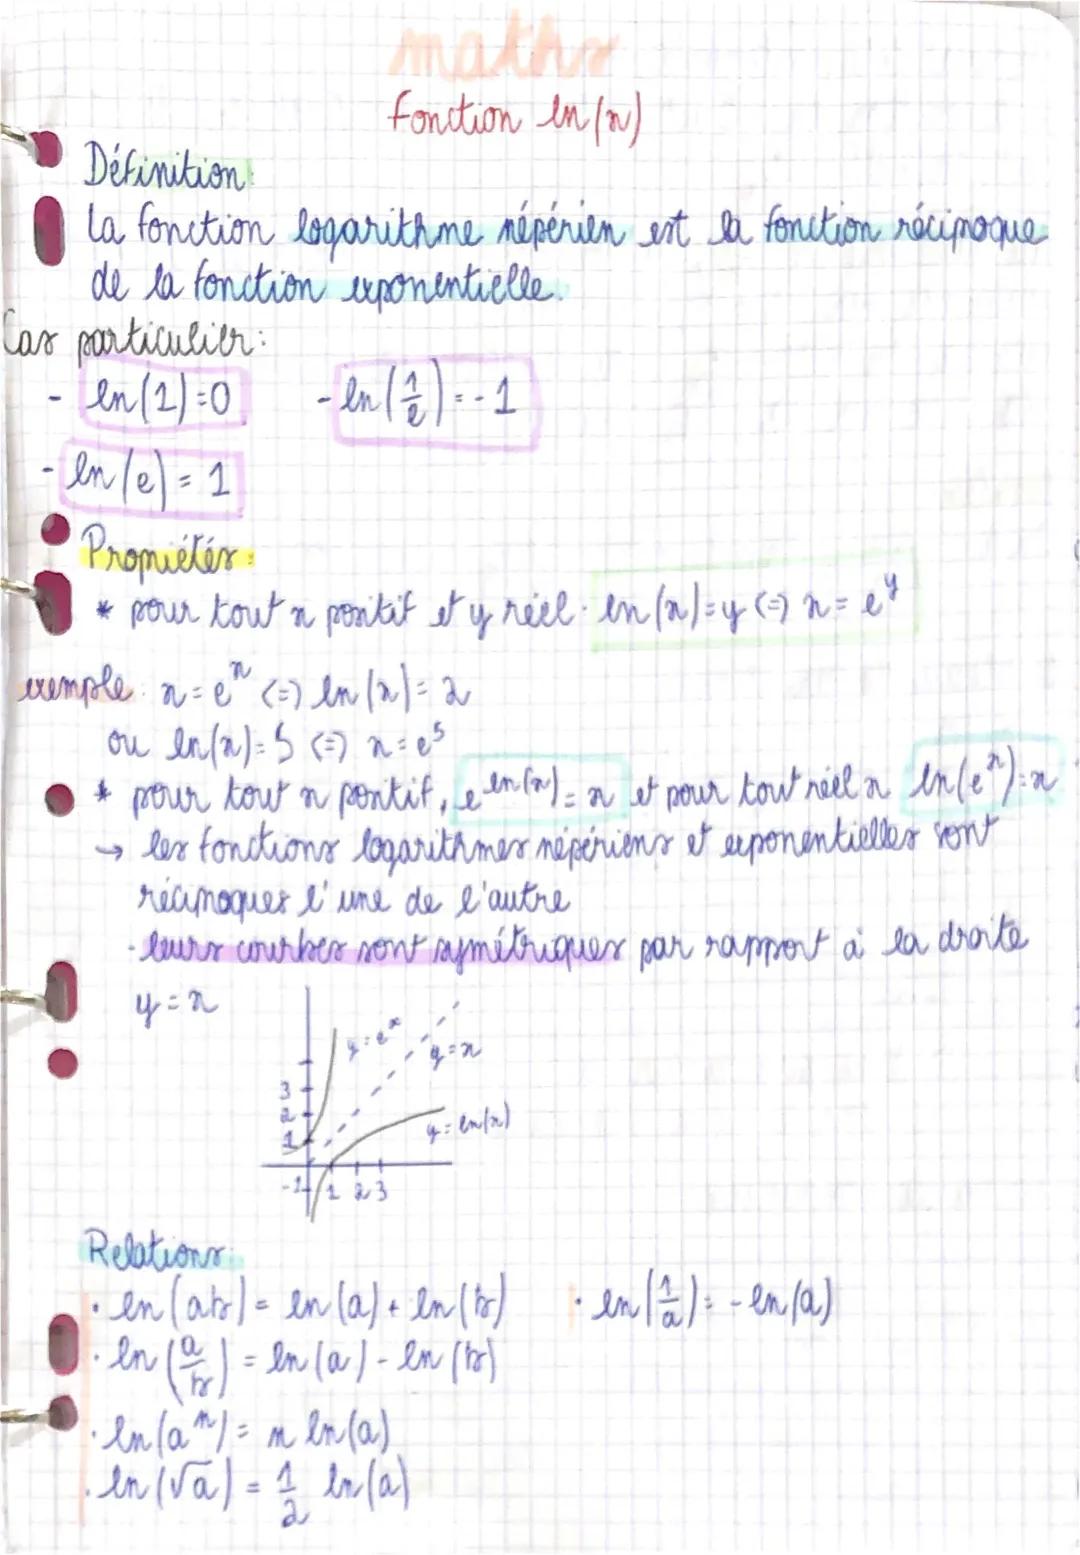 maths
Fonction ln(x)
Définition:
La fonction logarithme népérien est la fonction réciproque
de la fonction exponentielle.
Cas particulier:
- ln(1)=0 - ln(1/e)=-1
- ln(e)=1
Propriétés:
* pour tout x positif et y réel: ln(x)=y <=> x=e^y
exemple: x=e^x <=> ln(x)=2
ou ln(x)=5 <=> x=e^5
* pour tout x positif, e^ln(x)=x et pour tout réel x ln(e^x)=x
→ les fonctions logarithmes népériens et exponentielles sont
réciproques l'une de l'autre
- leurs courbes sont symétriques par rapport à la droite
y=x
y=e^x
y=x
3
2
y=ln(x)
1
-1 1 2 3
Relations:
· ln(ab)=ln(a)+ln(b) · ln(1/a)=-ln(a)
· ln(a/b)=ln(a)-ln(b)
· ln(a^n)=n ln(a)
· ln(√a)=1/2 ln(a)